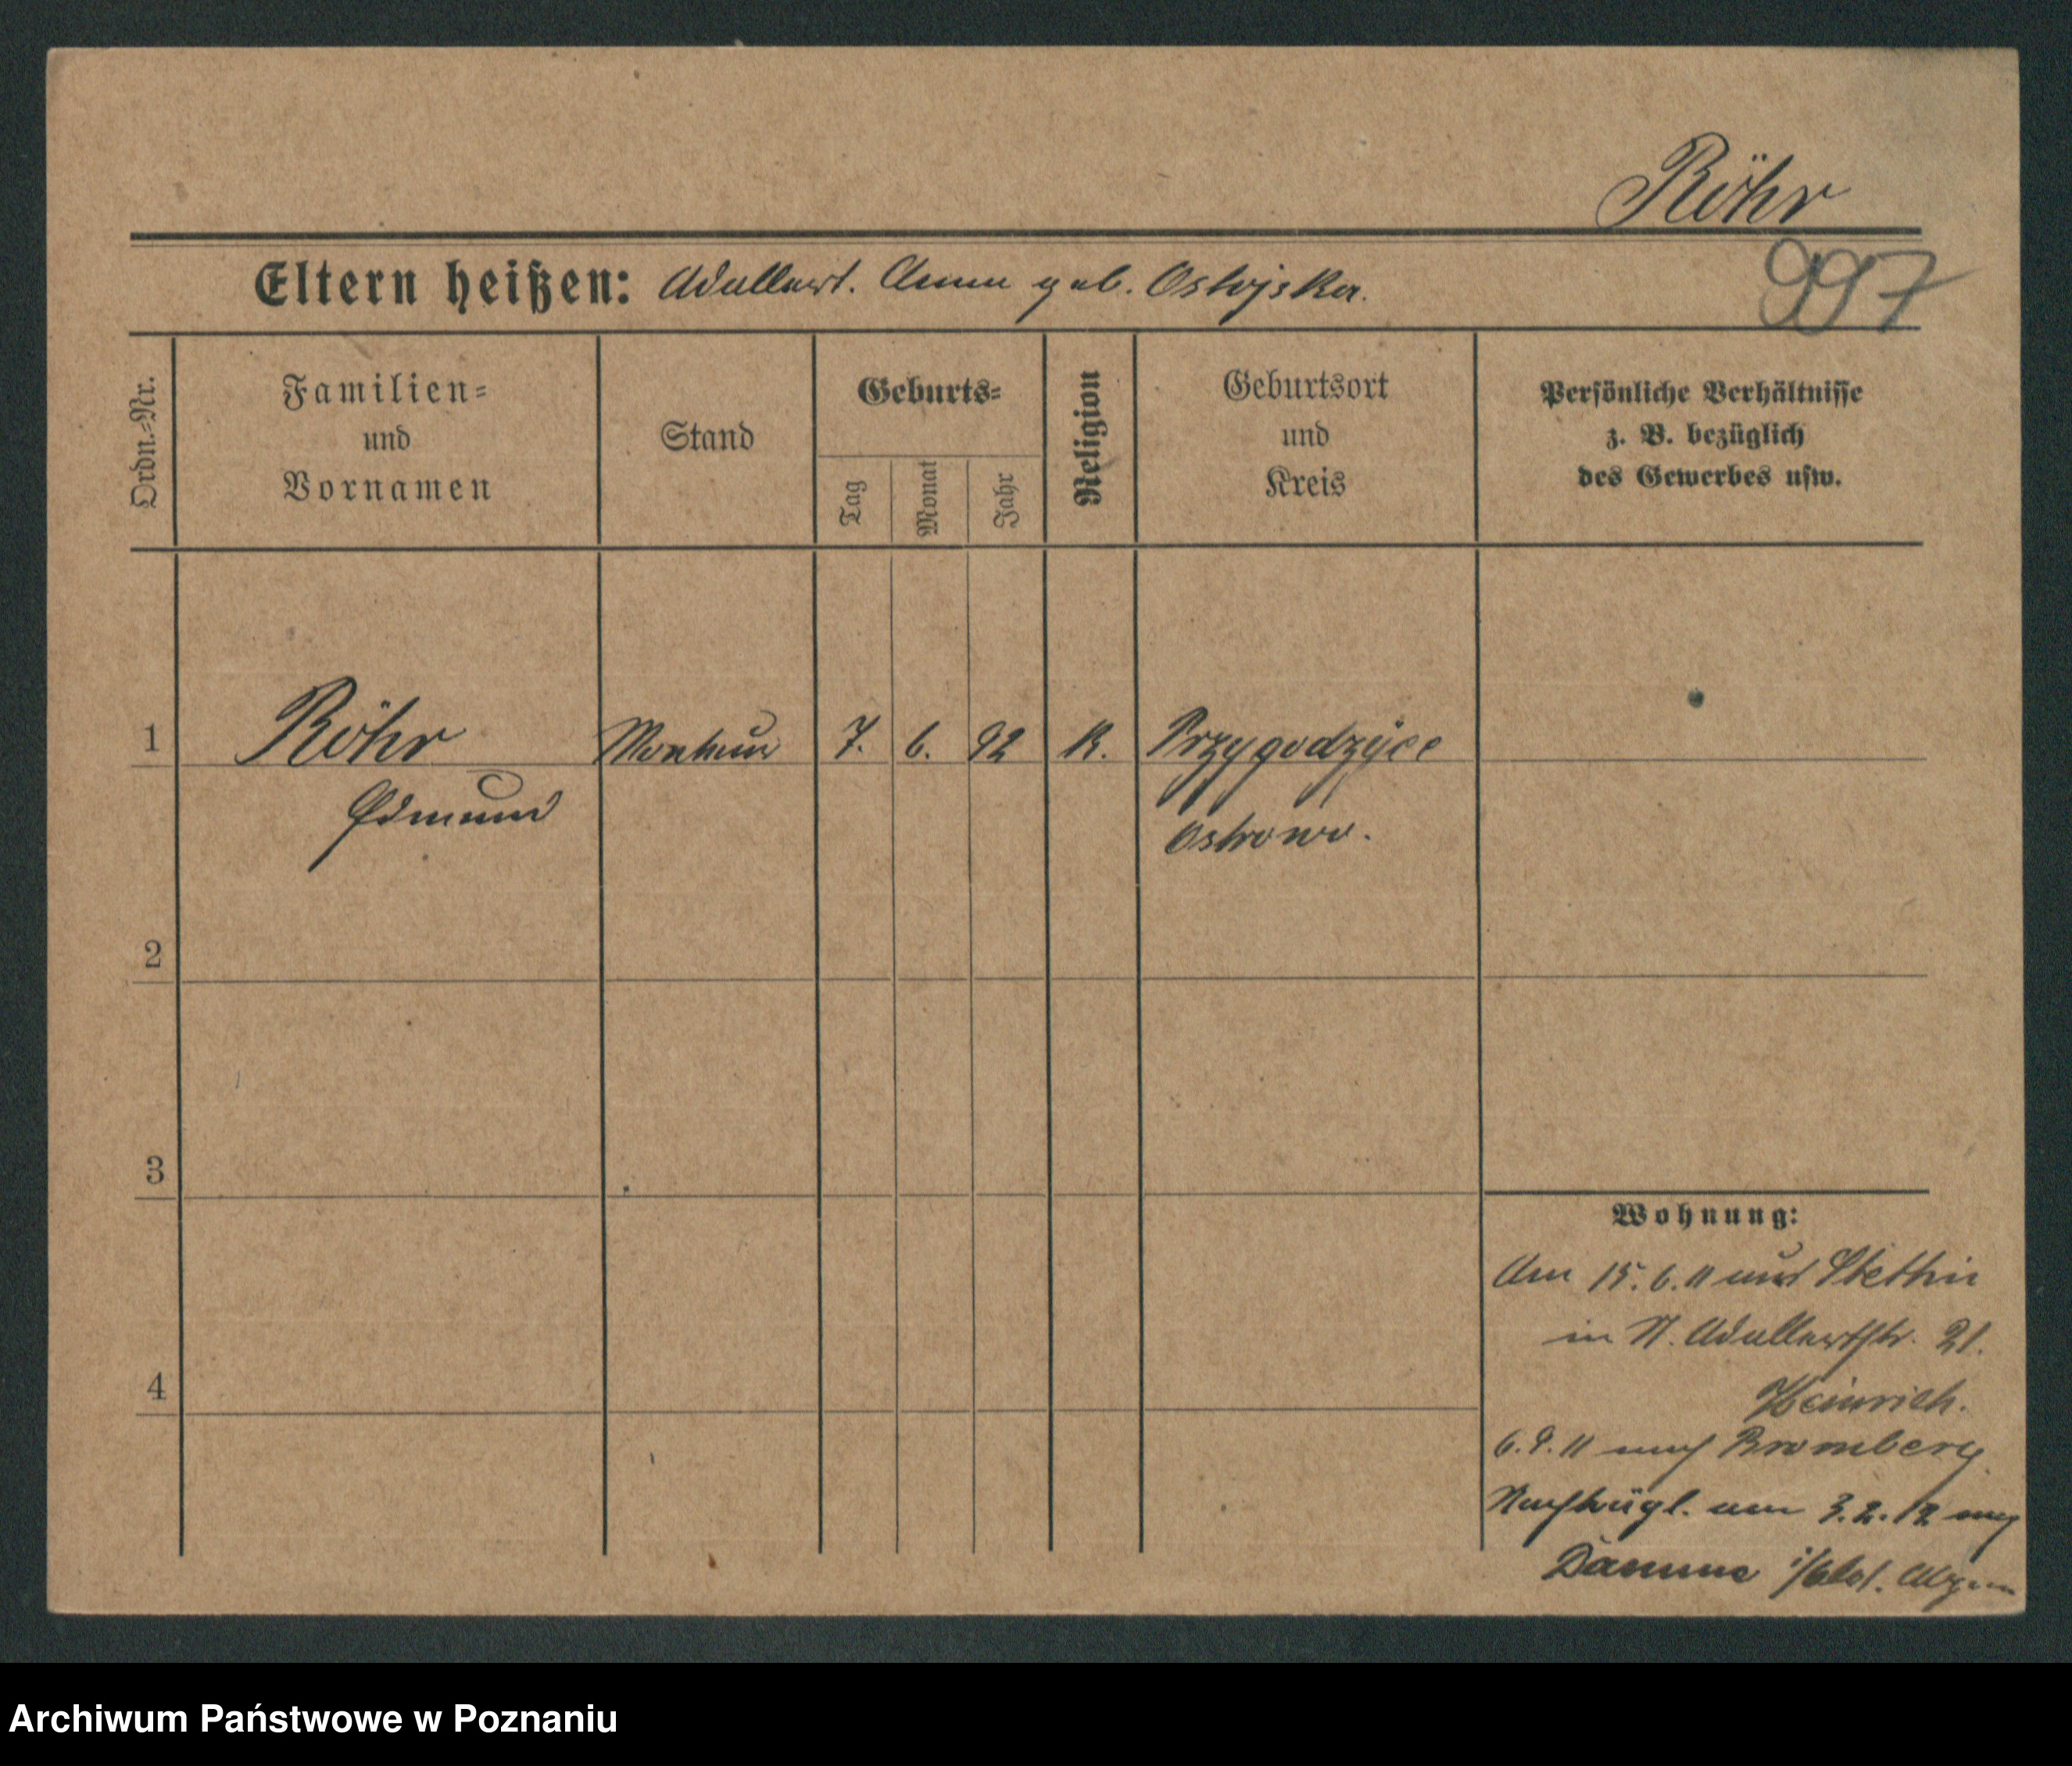 Röhr
Eltern heißen: Adalbert. Anna geb. Ostojska.
997
Ordn.-Nr.
Familien-
und
Vornamen
Stand
Geburts-
Tag
Monat
Jahr
Religion
Geburtsort
und
Kreis
Persönliche Verhältnisse
z. B. bezüglich
des Gewerbes usw.
1 Röhr Monteur 7. 6. 92 K. Przygodzyce
Edmund Ostrowo.
2
3
4
Wohnung:
Am 15.6.11 aus Stettin
in Adalbertstr. 21.
Heinrich.
6.9.11 nach Bromberg
Nachträgl. am 3.2.12 nach
Damme
Archiwum Państwowe w Poznaniu